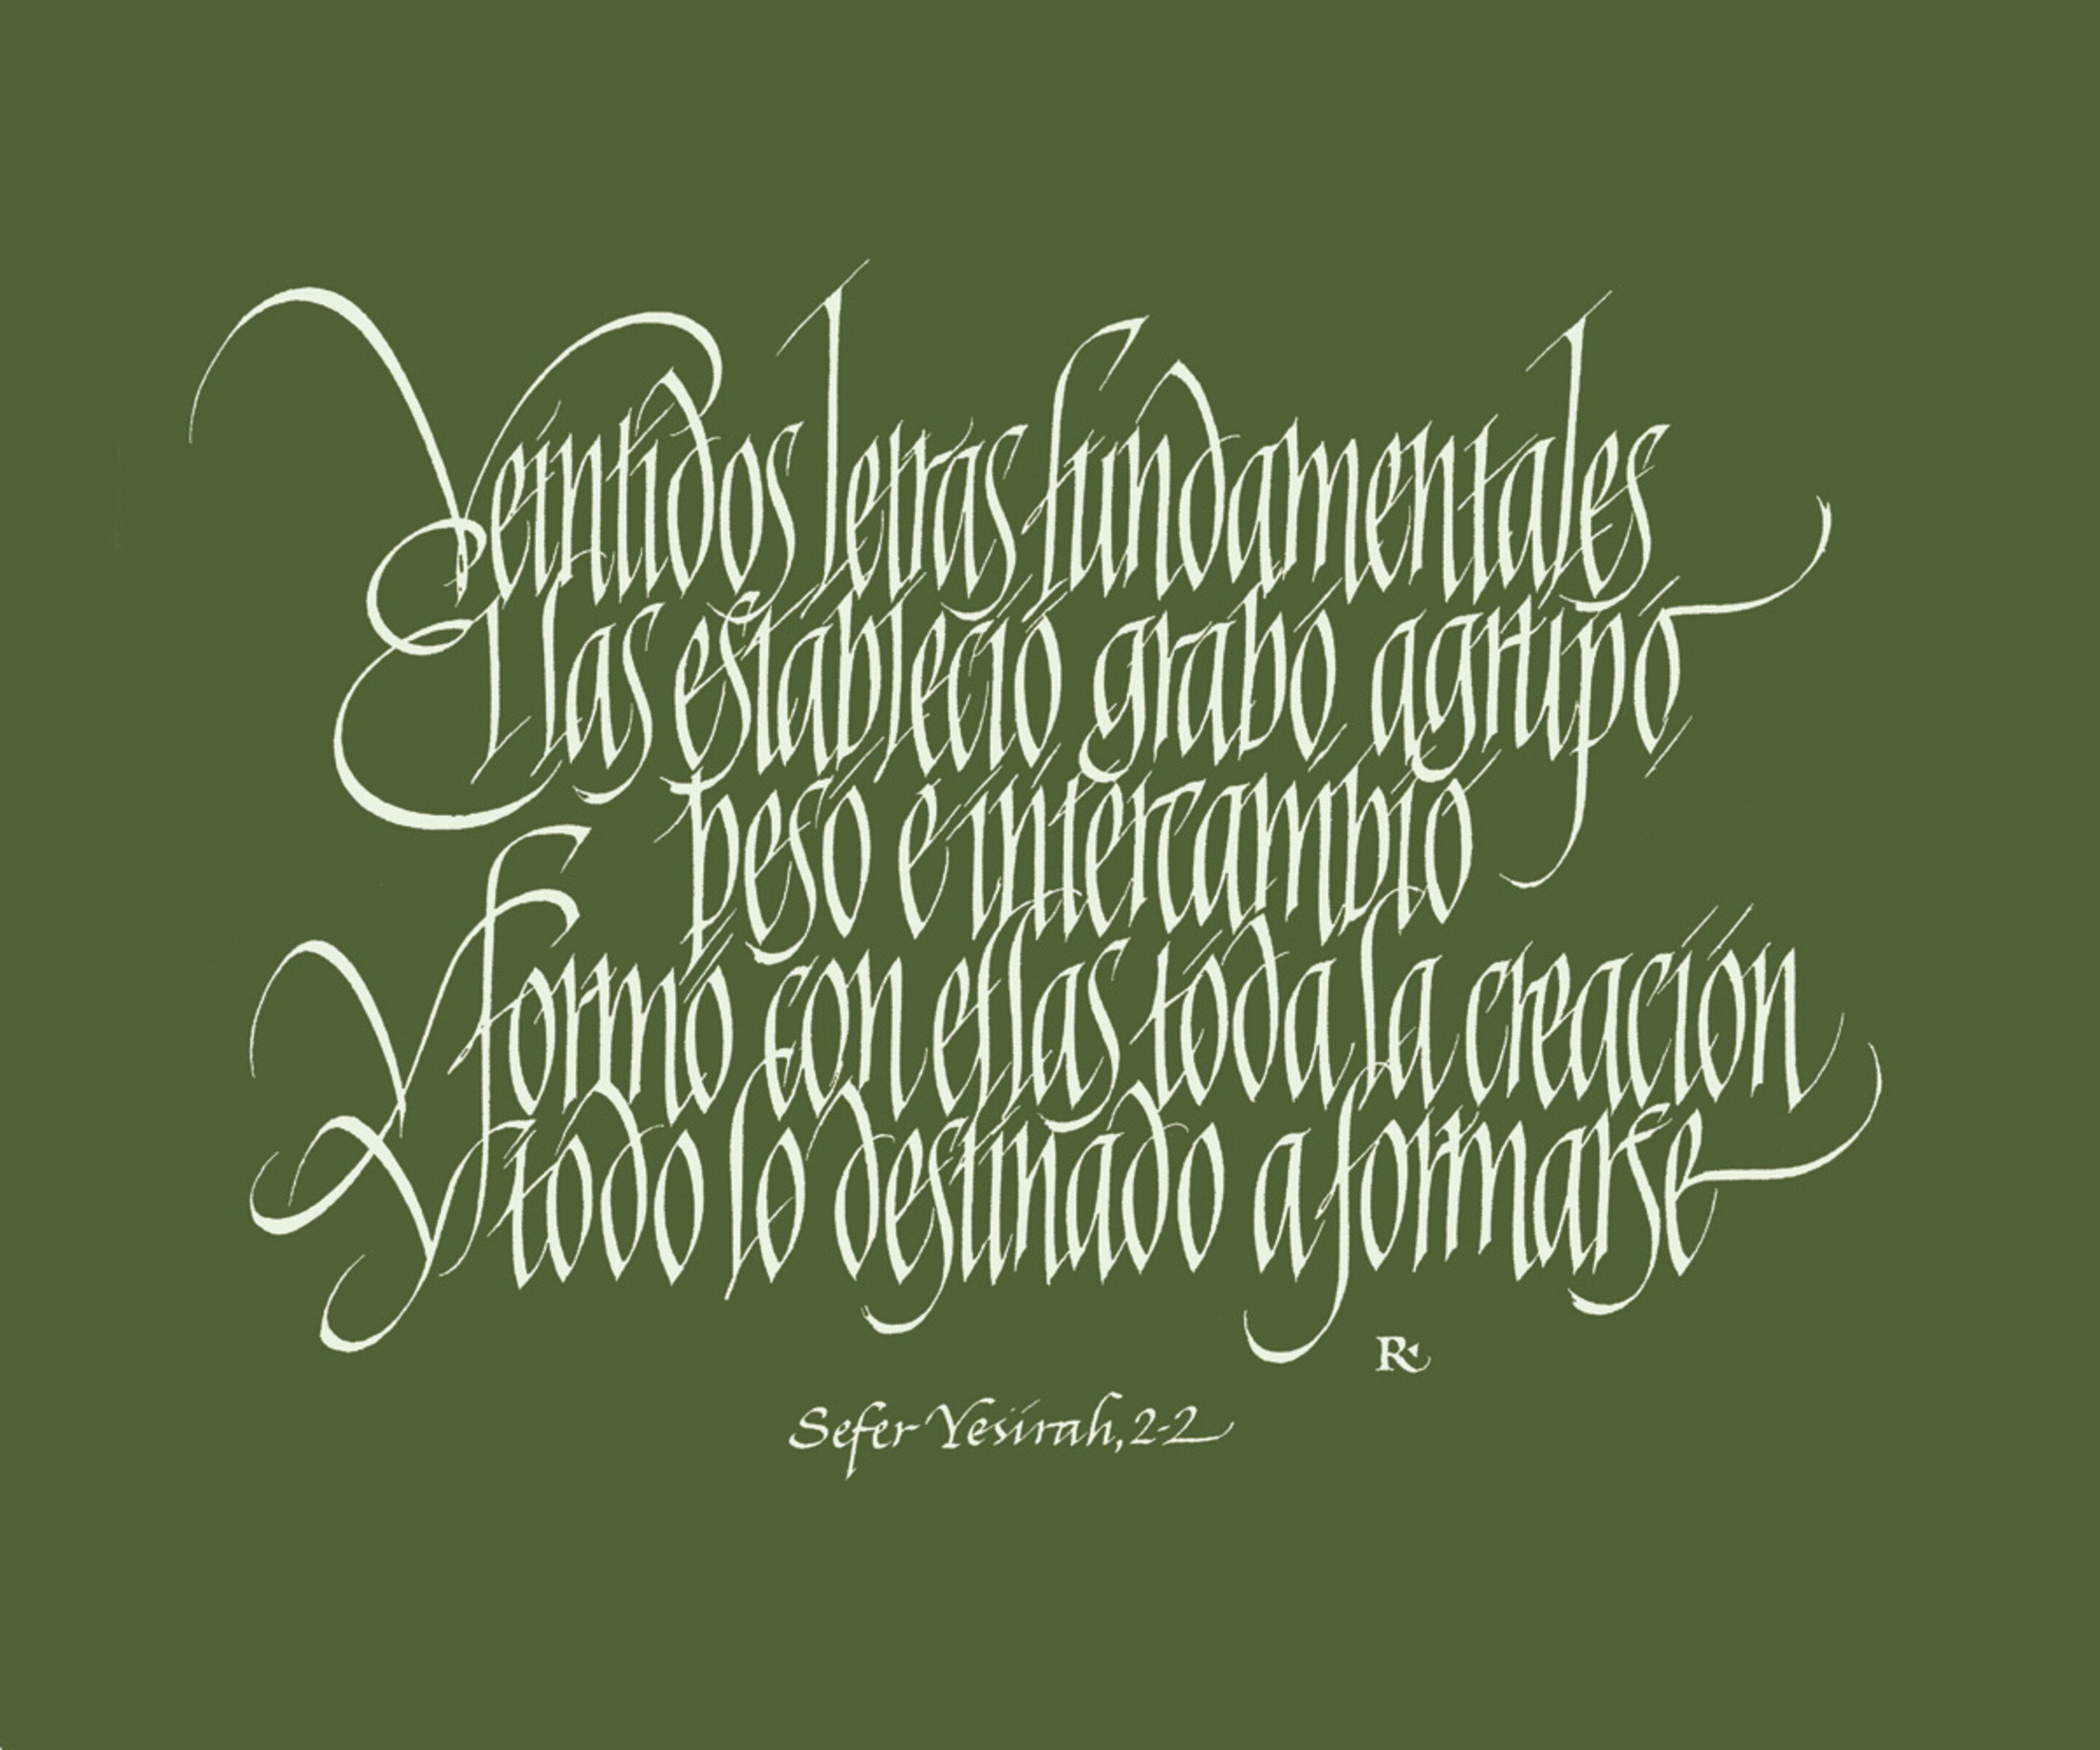 Veintidos letras fundamentales
El las estableció grabó agrupó
pesó e intercambió
Y formó con ellas toda la creación
Y todo lo destinado a formarse
R
Sefer Yesirah, 2-2